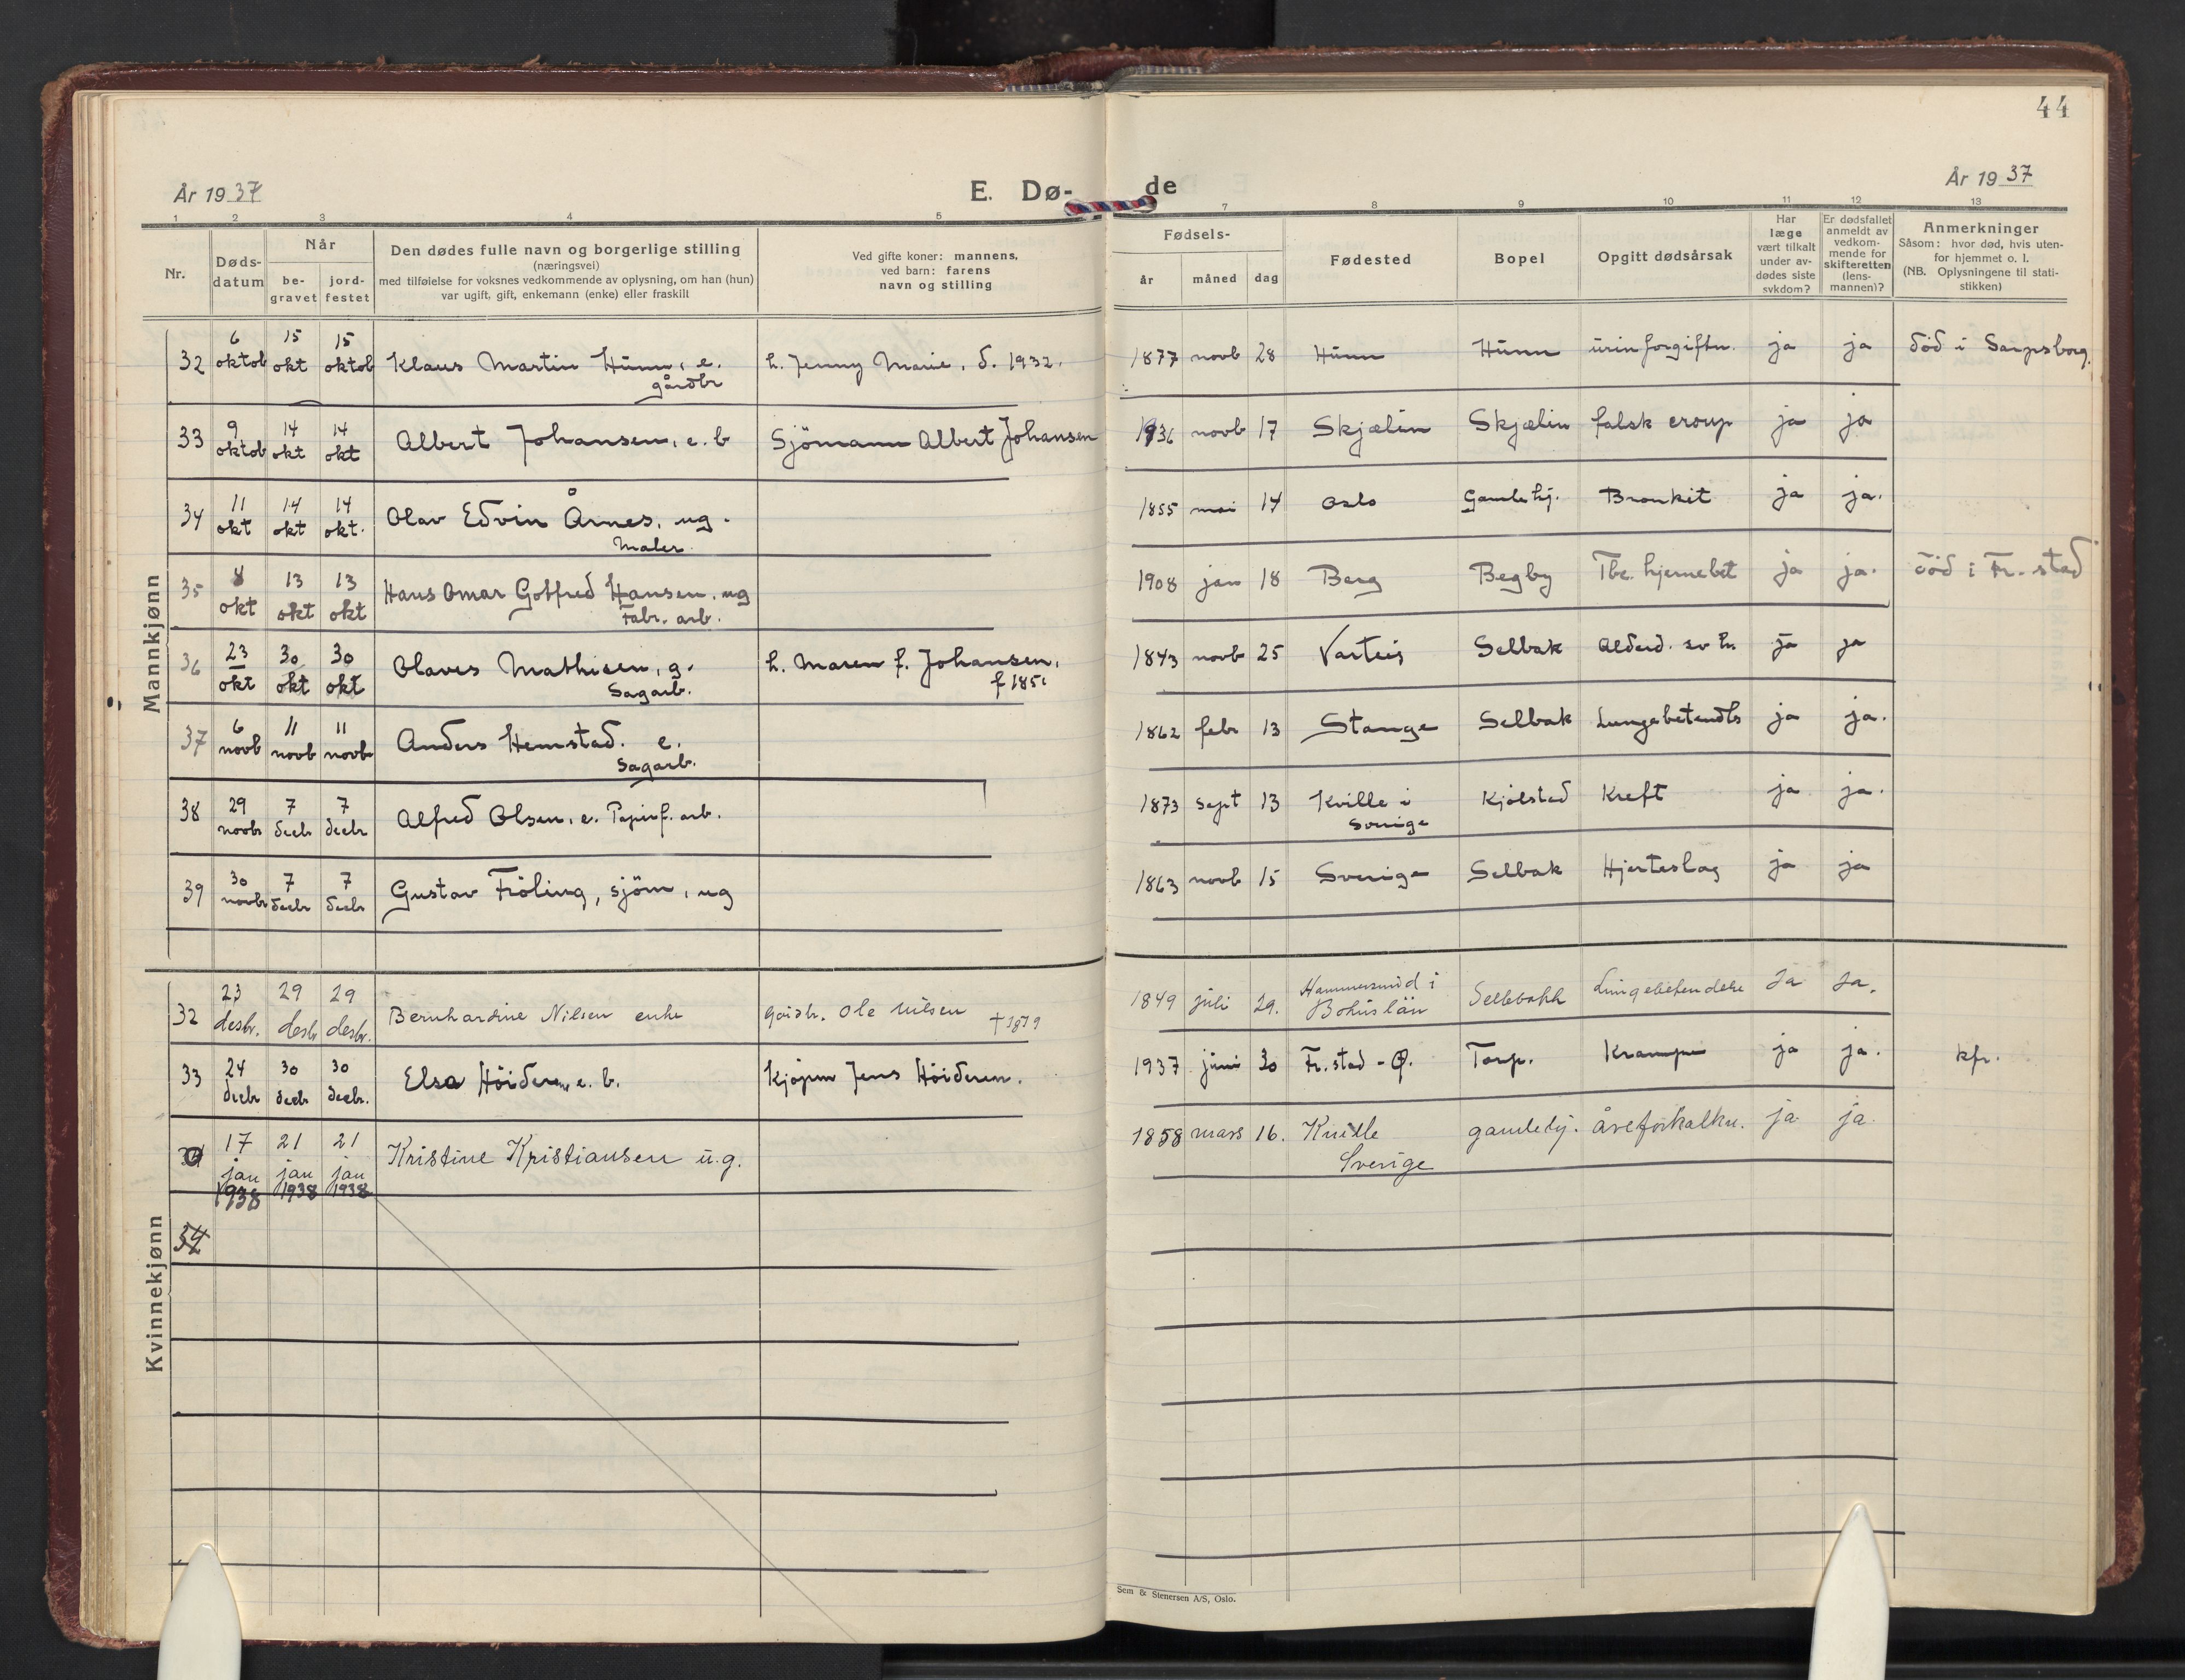 44
År 1937
E. Dø-
de
År 1937
1 2 3 4 5
7 8 9 10 11 12 13
Nr.
Døds-
datum
Når
be-
gravet
jord-
festet
Den dødes fulle navn og borgerlige stilling
(næringsvei)
med tilføielse for voksnes vedkommende av oplysning, om han (hun)
var ugift, gift, enkemann (enke) eller fraskilt
Ved gifte koner: mannens,
ved barn: farens
navn og stilling
Fødsels-
år måned dag
Fødested
Bopel
Opgitt dødsårsak
Har
læge
vært tilkalt
under av-
dødes siste
sykdom?
Er dødsfallet
anmeldt av
vedkom-
mende for
skifteretten
(lens-
mannen)?
Anmerkninger
Såsom: hvor død, hvis uten-
for hjemmet o. l.
(NB. Oplysningene til stati-
stikken)
Mannkjønn
6 15 15
32 oktob okt oktob Klaus Martin Hunn, e. h. Jenny Marie, d. 1932. 1877 novb 28 Hunn Hunn urinforgiftn. ja ja död i Sarpsborg.
gårdbr
9 14 14
33 oktob okt okt Albert Johansen, e. b Sjömann Albert Johansen 1936 novb 17 Skjælin Skjælin falsk croup ja ja
11 14 14
34 okt okt okt. Olav Edvin Årnes, ug. 1855 mai 14 Oslo Gamlehj. Bronkit ja ja.
Maler
8 13 13
35 okt okt okt Hans Omar Gotfred Hansen, ug 1908 jan 18 Berg Begby Tbc. hjernebet ja ja. död i Fr.stad
Fabr. arb.
23 30 30
36 okt okt okt Olaves Mathisen, g. h. Maren f. Johansen, 1843 novb 25 Varteig Selbak Alderd. ja ja
Sagarb. f 1851
6 11 11
37 novb novb novb Anders Hemstad. e. 1862 febr 13 Stange Selbak Lungebetendls ja ja.
Sagarb.
29 7 7
38 novbr decbr decbr Alfred Olsen, e. Papirf. arb. 1873 sept 13 Kville i Kjölstad Kreft ja ja.
Sverige
30 7 7
39 novbr decbr decbr Gustav Fröling, sjöm, ug 1863 novb 15 Sverige Selbak Hjerteslag ja ja
Kvinnekjønn
23 29 29
32 desbr. desbr desbr. Bernhardine Nilsen enke Gårdbr. Ole Nilsen †1879 1849 juli 29. Hammersmid i Bohuslän Sellebakk Lungebetendelse Ja Ja.
24 30 30
33 decbr decbr decbr. Elsa Höideren, e. b. Kjøpm Jens Höideren. 1937 juni 30 Fr.stad - Ø. Torp. Krampe ja ja. kfr.
17 21 21
jan jan jan Kristine Kristiansen u.g. 1858 mars 16. Kville gamlehj. åreforkalkn. ja ja.
1938 1938 1938 Sverige
34
Sem & Stenersen A/S, Oslo.